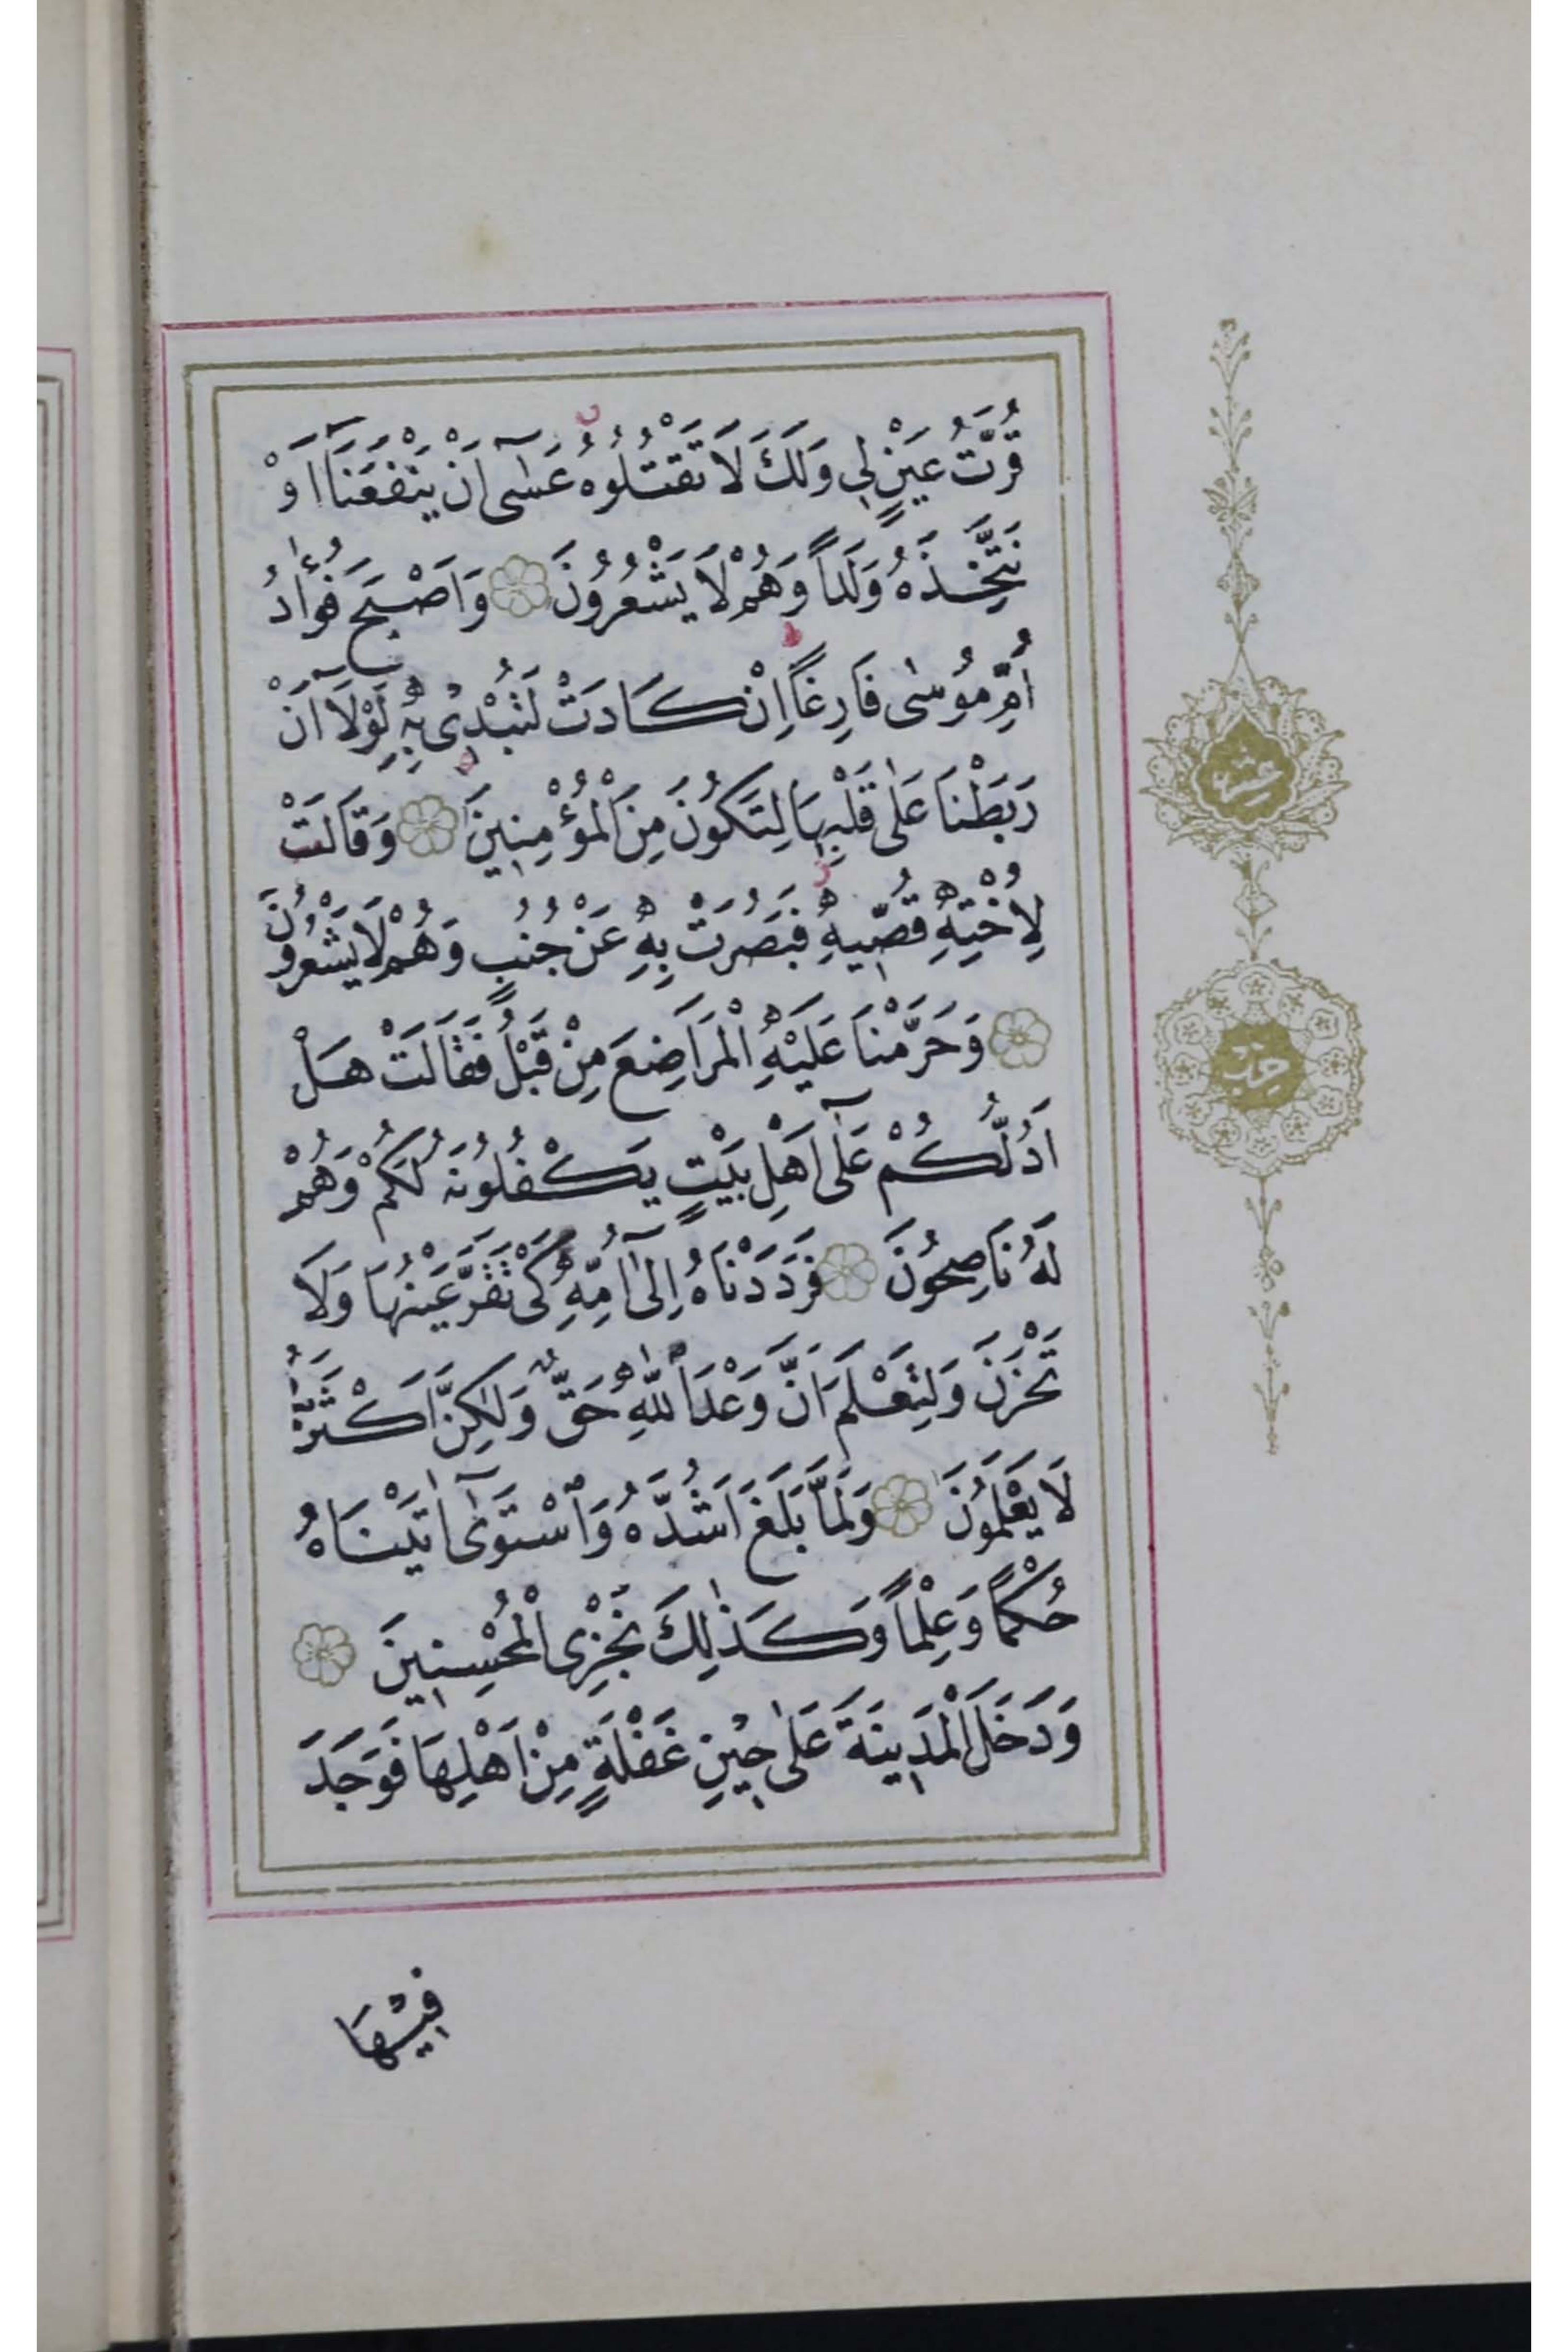 قُرَّتُ عَيْنٍ لِي وَلَكَ لَا تَقْتُلُوهُ عَسٰٓى اَنْ يَنْفَعَنَٓا اَوْ
نَتَّخِذَهُ وَلَداً وَهُمْ لَا يَشْعُرُونَ وَاَصْبَحَ فُؤٰادُ
اُمِّ مُوسٰى فَارِغاً اِنْ كَادَتْ لَتُبْدِى بِهِ لَوْلَٓا اَنْ
رَبَطْنَا عَلٰى قَلْبِهَا لِتَكُونَ مِنَ الْمُؤْمِنِينَ وَقَالَتْ
لِاُخْتِهِ قُصِّيهِ فَبَصُرَتْ بِهِ عَنْ جُنُبٍ وَهُمْ لَا يَشْعُرُونَ
وَحَرَّمْنَا عَلَيْهِ الْمَرَاضِعَ مِنْ قَبْلُ فَقَالَتْ هَلْ
اَدُلُّكُمْ عَلٰٓى اَهْلِ بَيْتٍ يَكْفُلُونَهُ لَكُمْ وَهُمْ
لَهُ نَاصِحُونَ فَرَدَدْنَاهُ اِلٰٓى اُمِّهِ كَىْ تَقَرَّ عَيْنُهَا وَلَا
تَحْزَنَ وَلِتَعْلَمَ اَنَّ وَعْدَ اللّٰهِ حَقٌّ وَلٰكِنَّ اَكْثَرَهُمْ
لَا يَعْلَمُونَ وَلَمَّا بَلَغَ اَشُدَّهُ وَاسْتَوٰٓى اٰتَيْنَاهُ
حُكْماً وَعِلْماً وَكَذٰلِكَ نَجْزِى الْمُحْسِنِينَ
وَدَخَلَ الْمَدِينَةَ عَلٰى حِينِ غَفْلَةٍ مِنْ اَهْلِهَا فَوَجَدَ
فِيْهَا
عشر
حزب